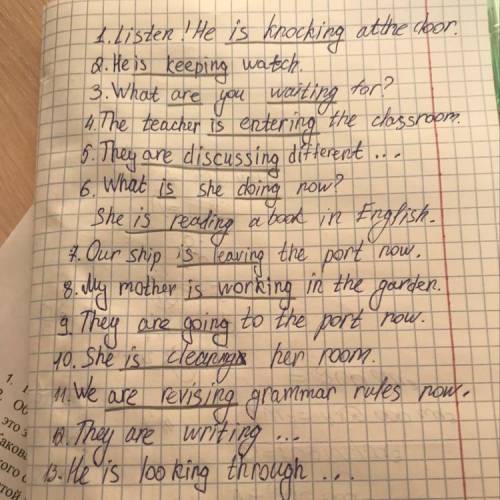 1. Listen! He is knocking at the door.
2. He is keeping watch.
3. What are you waiting for?
4. The teacher is entering the classroom.
5. They are discussing different ...
6. What is she doing now?
She is reading a book in English.
7. Our ship is leaving the port now.
8. My mother is working in the garden.
9. They are going to the port now.
10. She is cleaning her room.
11. We are revising grammar rules now.
12. They are writing ...
13. He is looking through ...
1.
2. Об
это з
Каков
кого с